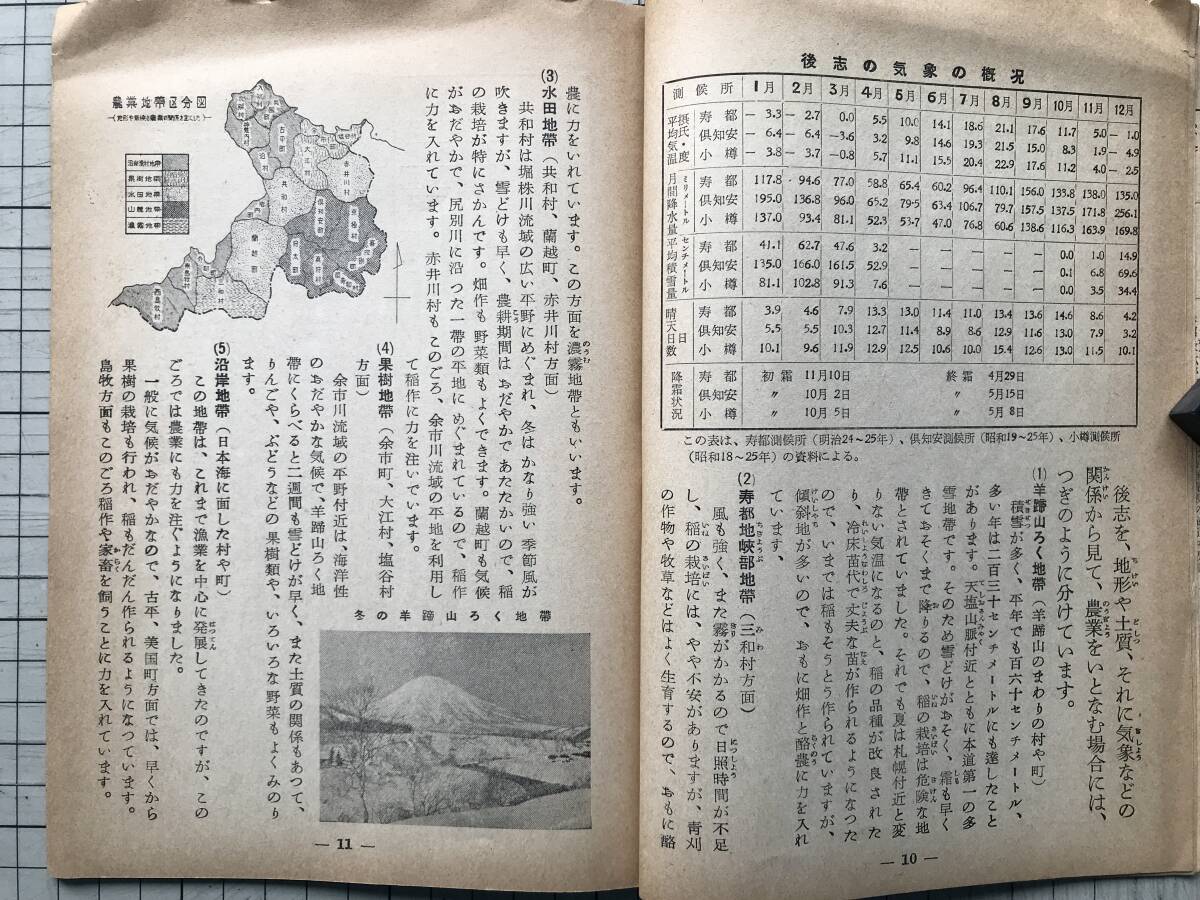 後志の気象の概況
測候所 1月 2月 3月 4月 5月 6月 7月 8月 9月 10月 11月 12月
摂氏・度 平均気温
寿都 －3.3 －2.7 0.0 5.5 10.0 14.1 18.6 21.1 17.6 11.7 5.0 －1.0
倶知安 －6.4 －6.4 －3.6 3.2 9.8 14.6 19.3 21.5 15.0 8.3 1.9 －4.9
小樽 －3.8 －3.7 －0.8 5.7 11.1 15.5 20.4 22.9 17.6 11.2 4.0 －2.5
ミリメートル 月間降水量
寿都 117.8 94.6 77.0 58.8 65.4 60.2 96.4 110.1 156.0 133.8 138.0 135.0
倶知安 195.0 136.8 96.0 65.2 79.5 63.4 106.7 79.7 157.5 137.5 171.8 256.1
小樽 137.0 93.4 81.1 52.3 53.7 47.0 76.8 60.6 138.6 116.3 163.9 169.8
センチメートル 平均積雪量
寿都 41.1 62.7 47.6 3.2 － － － － － 0.0 1.0 14.9
倶知安 135.0 166.0 161.5 52.9 － － － － － 0.1 6.8 69.6
小樽 81.1 102.8 91.3 7.6 － － － － － 0.0 3.5 34.4
日 晴天日数
寿都 3.9 4.6 7.9 13.3 13.0 11.4 11.0 13.4 13.6 14.6 8.6 4.2
倶知安 5.5 5.5 10.3 12.7 11.4 8.9 8.6 12.9 11.6 13.0 7.9 3.2
小樽 10.1 9.6 11.9 12.9 12.5 10.6 10.0 15.4 12.6 13.0 11.5 10.1
降霜状況
寿都 初霜 11月10日 終霜 4月29日
倶知安 〃 10月2日 〃 5月15日
小樽 〃 10月5日 〃 5月8日
この表は、寿都測候所（明治24～25年）、倶知安測候所（昭和19～25年）、小樽測候所
（昭和18～25年）の資料による。
後志を、地形や土質、それに気象などの
関係から見て、農業をいとなむ場合には、
つぎのように分けています。
(1)羊蹄山ろく地帯（羊蹄山のまわりの村や町）
積雪が多く、平年でも百六十センチメートル、
多い年は二百三十センチメートルにも達したこと
があります。天塩山脈付近とともに本道第一の多
雪地帯です。そのため雪どけがおそく、霜も早く
きておそくまで降りるので、稲の栽培は危険な地
帯とされていました。それでも夏は札幌付近と変
りない気温になるのと、稲の品種が改良された
り、冷床苗代で丈夫な苗が作られるようになつた
ので、いまでは稲もそうとう作られていますが、
傾斜地が多いので、おもに畑作と酪農に力を入れ
ています。
(2)寿都地峡部地帯（三和村方面）
風も強く、また霧がかかるので日照時間が不足
し、稲の栽培には、やや不安がありますが、青刈
の作物や牧草などはよく生育するので、おもに酪
— 10 —
農に力をいれています。この方面を濃霧地帯ともいいます。
(3)水田地帯（共和村、蘭越町、赤井川村方面）
共和村は堀株川流域の広い平野にめぐまれ、冬はかなり強い季節風が
吹きますが、雪どけも早く、農耕期間はおだやかであたたかいので、稲
の栽培が特にさかんです。畑作も野菜類もよくできます。蘭越町も気候
がおだやかで、尻別川に沿つた一帯の平地にめぐまれているので、稲作
に力を入れています。赤井川村もこのごろ、余市川流域の平地を利用し
て稲作に力を注いでいます。
(4)果樹地帯（余市町、大江村、塩谷村
方面）
余市川流域の平野付近は、海洋性
のおだやかな気候で、羊蹄山ろく地
帯にくらべると二週間も雪どけが早く、また土質の関係もあつて、
りんごや、ぶどうなどの果樹類や、いろいろな野菜もよくみのり
ます。
(5)沿岸地帯（日本海に面した村や町）
この地帯は、これまで漁業を中心に発展してきたのですが、この
ごろでは農業にも力を注ぐようになりました。
一般に気候がおだやかなので、古平、美国町方面では、早くから
果樹の栽培も行われ、稲もだんだん作られるようになつています。
島牧方面もこのごろ稲作や家畜を飼うことに力を入れています。
農業地帯区分図
沿岸漁村地帯
果樹地帯
水田地帯
山麓地帯
濃霧地帯
古平町
赤井川村
共和村
倶知安町
京極村
喜茂別町
真狩村
狩太町
蘭越町
三和村
西島牧村
冬の羊蹄山ろく地帯
— 11 —